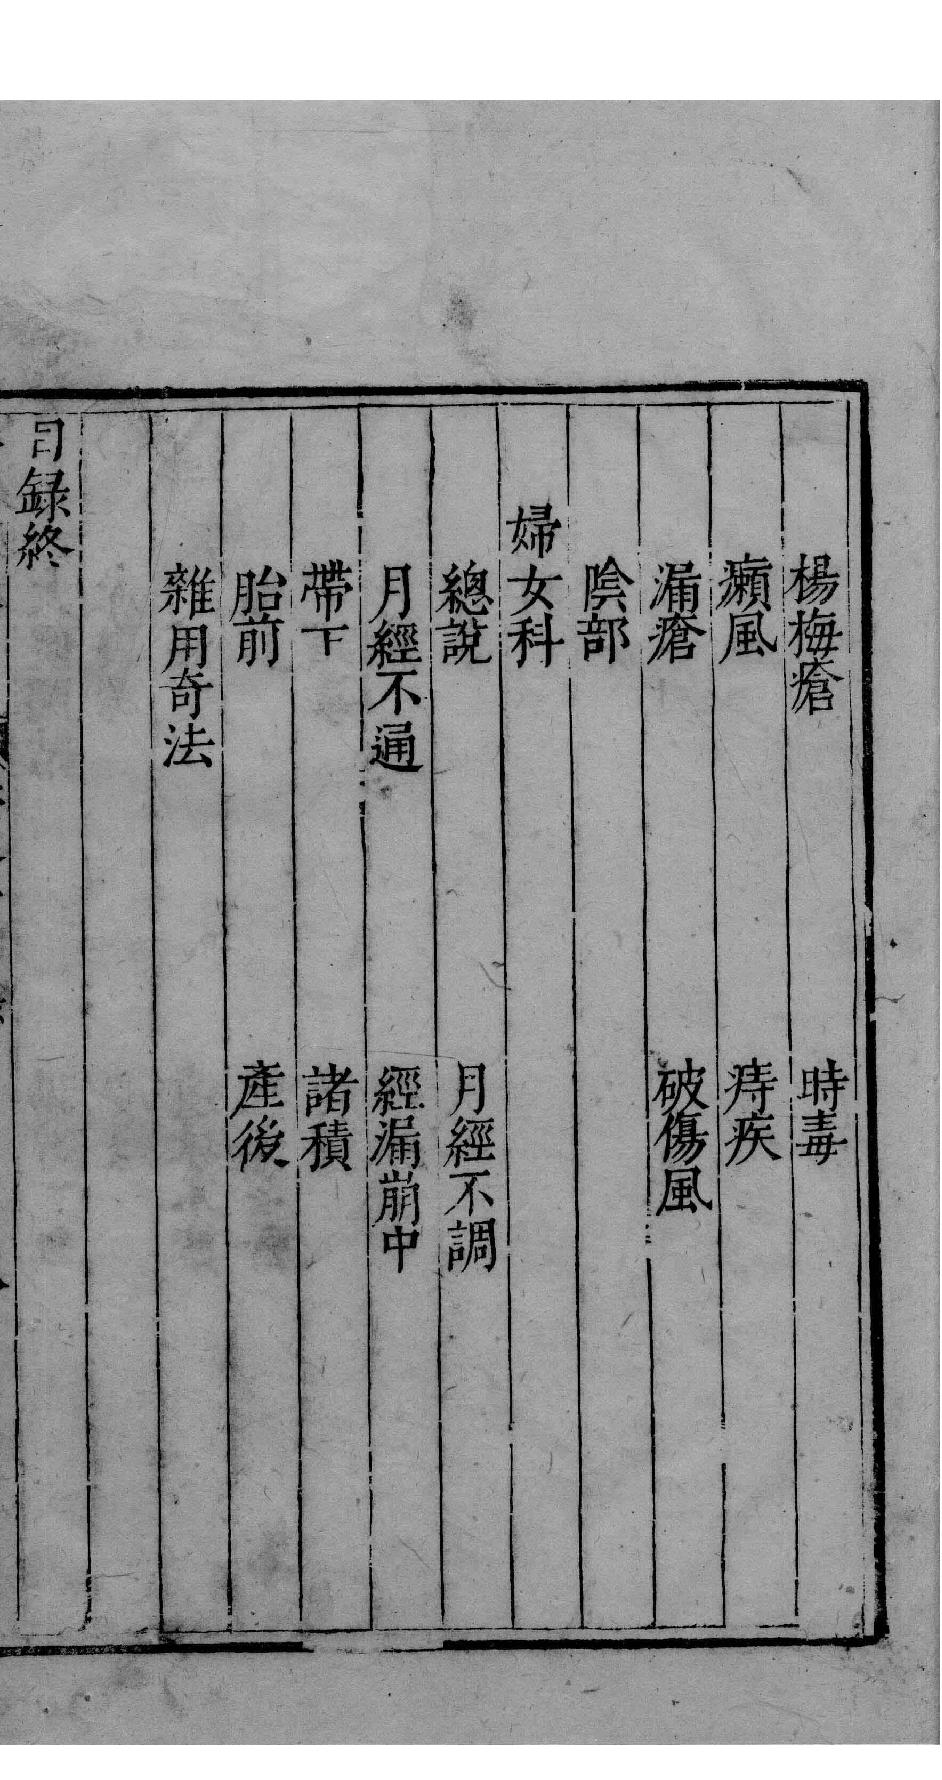 楊梅瘡　時毒
癩風　痔疾
漏瘡　破傷風
陰部
婦女科
總說　月經不調
月經不通　經漏崩中
帶下　諸積
胎前　產後
雜用奇法
目録終